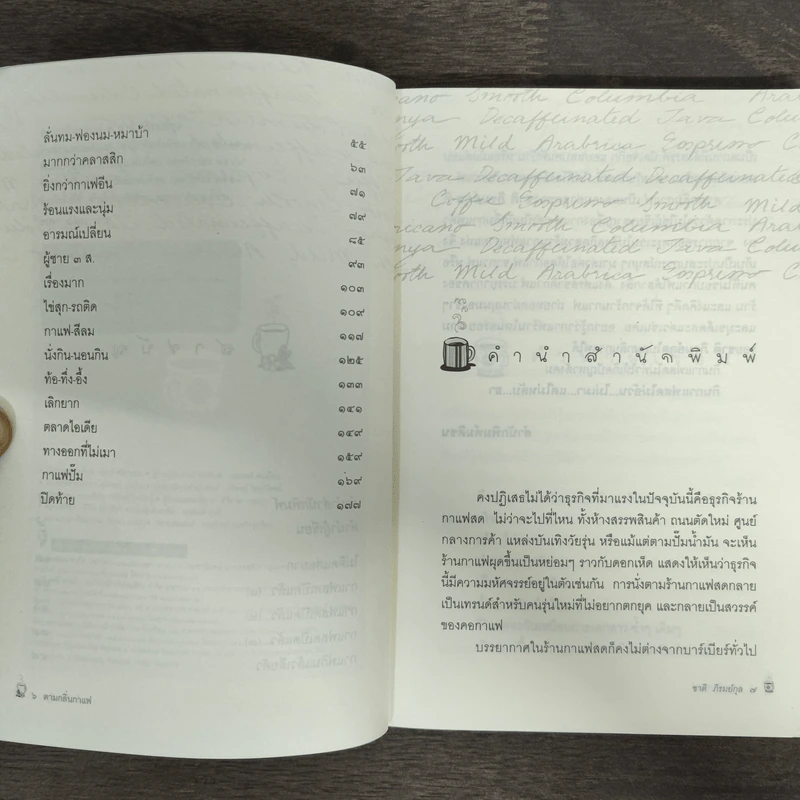 ลั่นทม-ฟองนม-หมาบ้า ๕๕
มากกว่าคลาสสิก ๖๓
ยิ่งกว่ากาเฟอีน ๗๑
ร้อนแรงและนุ่ม ๗๙
อารมณ์เปลี่ยน ๘๕
ผู้ชาย ๓ ส. ๙๓
เรื่องมาก ๑๐๓
ไข่สุก-รถติด ๑๐๙
กาแฟ-สีลม ๑๑๗
นั่งกิน-นอนกิน ๑๒๕
ท้อ-ทึ่ง-อึ้ง ๑๓๓
เลิกยาก ๑๔๑
ตลาดไอเดีย ๑๔๙
ทางออกที่ไม่เมา ๑๕๙
กาแฟปั๊ม ๑๖๙
ปิดท้าย ๑๗๗
๖ ตามกลิ่นกาแฟ
cano Smooth Columbia Ara
nya Decaffeinated Java Colu
oth Mild Arabica Espresso C
Java Decaffeinated Decaffeinated
Coffee Espresso Smooth Mild
ricano Smooth Columbia Arab
nya Decaffeinated Java Colu
ooth Mild Arabica Espresso Co
คำนำสำนักพิมพ์
คงปฏิเสธไม่ได้ว่าธุรกิจที่มาแรงในปัจจุบันนี้คือธุรกิจร้าน
กาแฟสด ไม่ว่าจะไปที่ไหน ทั้งห้างสรรพสินค้า ถนนตัดใหม่ ศูนย์
กลางการค้า แหล่งบันเทิงวัยรุ่น หรือแม้แต่ตามปั๊มน้ำมัน จะเห็น
ร้านกาแฟผุดขึ้นเป็นหย่อมๆ ราวกับดอกเห็ด แสดงให้เห็นว่าธุรกิจ
นี้มีความมหัศจรรย์อยู่ในตัวเช่นกัน การนั่งตามร้านกาแฟสดกลาย
เป็นเทรนด์สำหรับคนรุ่นใหม่ที่ไม่อยากตกยุค และกลายเป็นสวรรค์
ของคอกาแฟ
บรรยากาศในร้านกาแฟสดก็คงไม่ต่างจากบาร์เบียร์ทั่วไป
ชาติ ภิรมย์กุล ๗